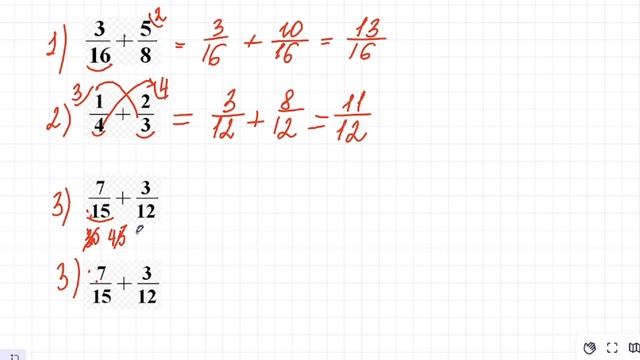 1) 3/16 + 5/8 ² = 3/16 + 10/16 = 13/16
2) ³ 1/4 + 2/3 ⁴ = 3/12 + 8/12 = 11/12
3) 7/15 + 3/12
30 45
3) 7/15 + 3/12